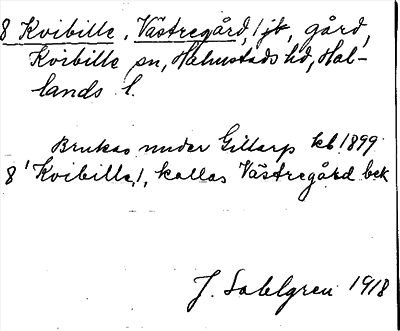 8 Kvibille, Västregård, 1 jb, gård,
Kvibille sn, Halmstads hd, Hal-
lands l.
Brukas under Gillarp kb 1899
8 1 Kvibille, 1, kallas Västregård bek
J. Sahlgren 1918